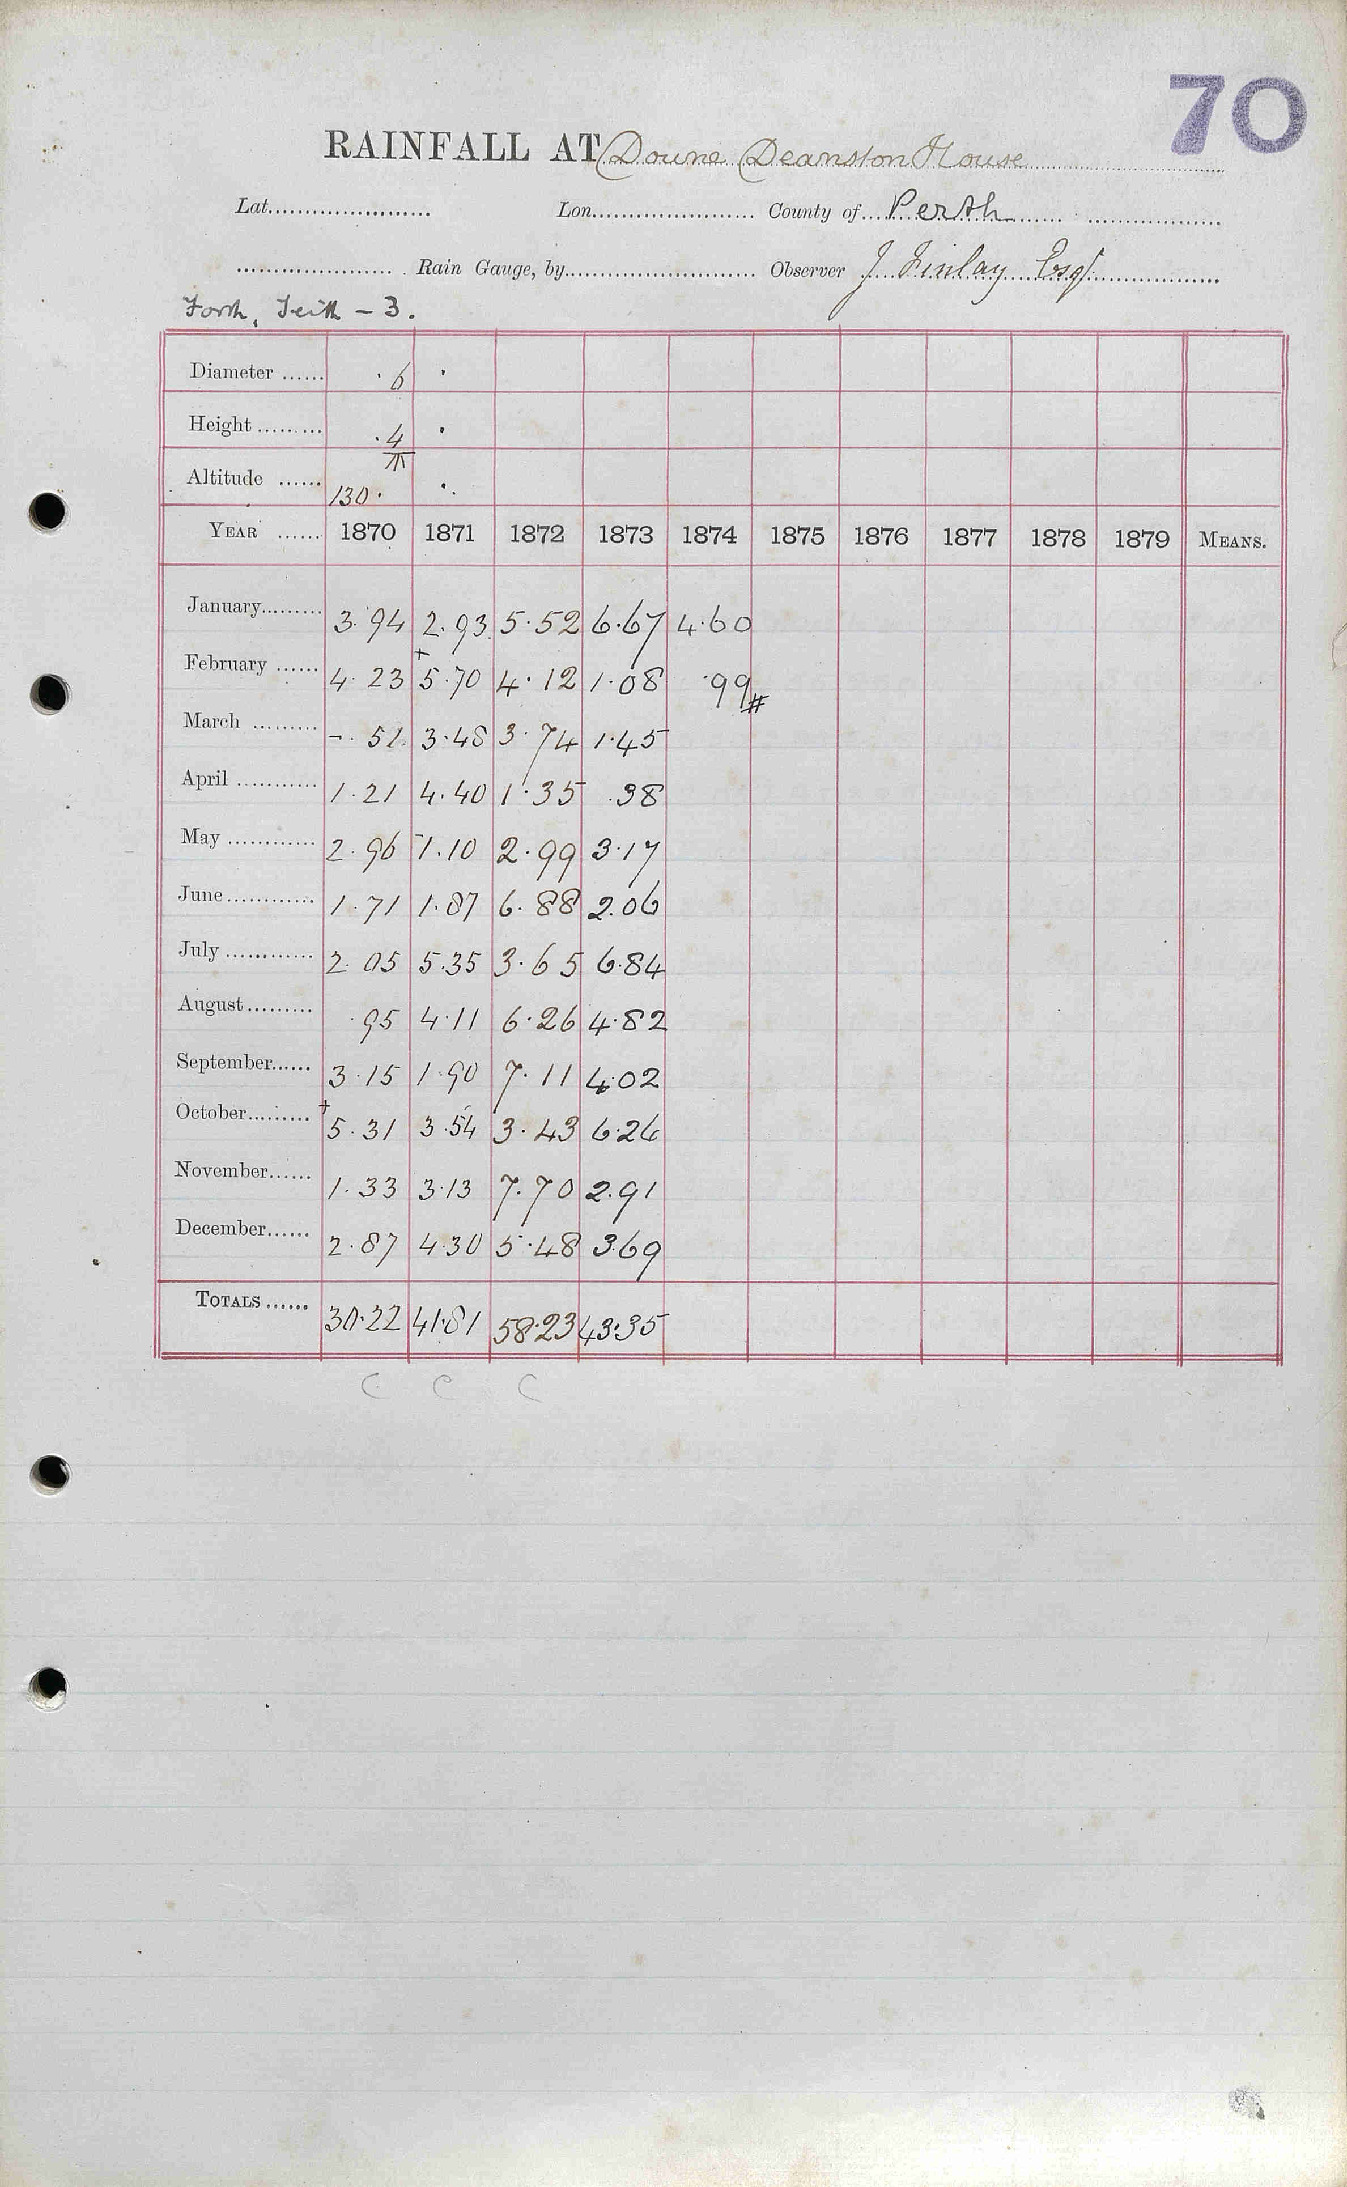 70
RAINFALL AT Doune Deanston House
Lat. Lon. County of Perth
Rain Gauge, by Observer J Finlay Esqr
Forth, Teith - 3.
Diameter ...... ·6 ·
Height ......... ·4 ·
Altitude ...... 130· ·
YEAR ...... 1870 1871 1872 1873 1874 1875 1876 1877 1878 1879 MEANS.
January......... 3.94 2.93 5.52 6.67 4.60
February ...... 4.23 +5.70 4.12 1.08 .99#
March ......... -.51 3.48 3.74 1.45
April ............ 1.21 4.40 1.35 .38
May ............ 2.96 1.10 2.99 3.17
June............ 1.71 1.87 6.88 2.06
July ............ 2.05 5.35 3.65 6.84
August......... .95 4.11 6.26 4.82
September...... 3.15 1.90 7.11 4.02
October......... +5.31 3.54 3.43 6.26
November...... 1.33 3.13 7.70 2.91
December...... 2.87 4.30 5.48 3.69
TOTALS...... 30.22 41.81 58.23 43.35
C C C